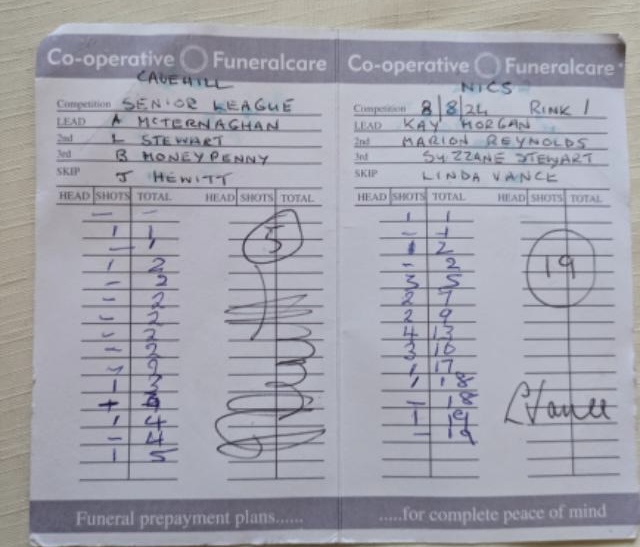 Co-operative Funeralcare
CAVEHILL
Competition SENIOR LEAGUE
LEAD A MCTERNAGHAN
2nd L STEWART
3rd B MONEYPENNY
SKIP J HEWITT
HEAD SHOTS TOTAL HEAD SHOTS TOTAL
- -
1 1
- 1
1 2
- 2
- 2
- 2
- 2
- 2
- 2
1 3
4
1 4
- 4
1 5
5
Funeral prepayment plans......
Co-operative Funeralcare
NICS
Competition 8/8/24 RINK 1
LEAD KAY MORGAN
2nd MARION REYNOLDS
3rd SUZZANE STEWART
SKIP LINDA VANCE
HEAD SHOTS TOTAL HEAD SHOTS TOTAL
1 1
- 1
1 2
- 2
3 5
2 7
2 9
4 13
3 16
1 17
1 18
- 18
1 19
- 19
19
L Vance
.....for complete peace of mind